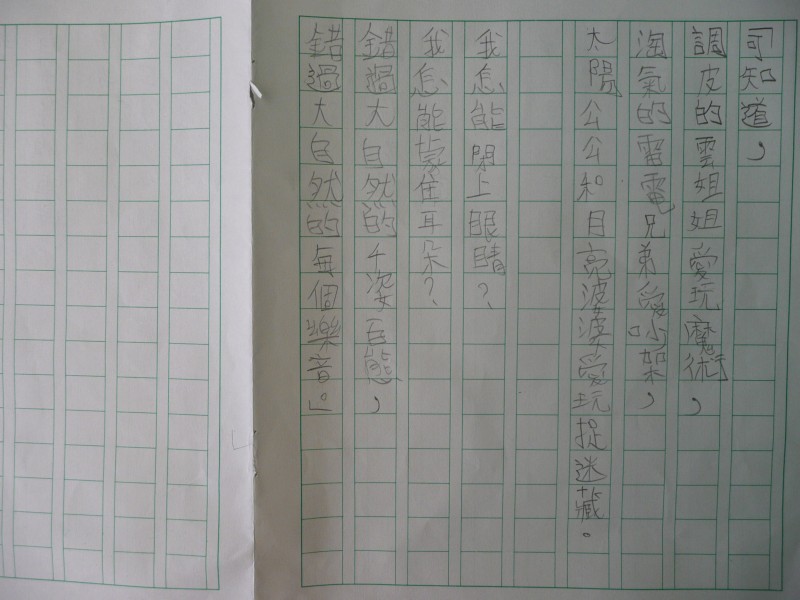 「可知道，
調皮的雲姐姐愛玩魔術，
淘氣的雷電兄弟愛吵架，
太陽公公和月亮婆婆愛玩捉迷藏。
我怎能閉上眼睛？
我怎能蒙住耳朵？
錯過大自然的千姿百態，
錯過大自然的每個樂音。」